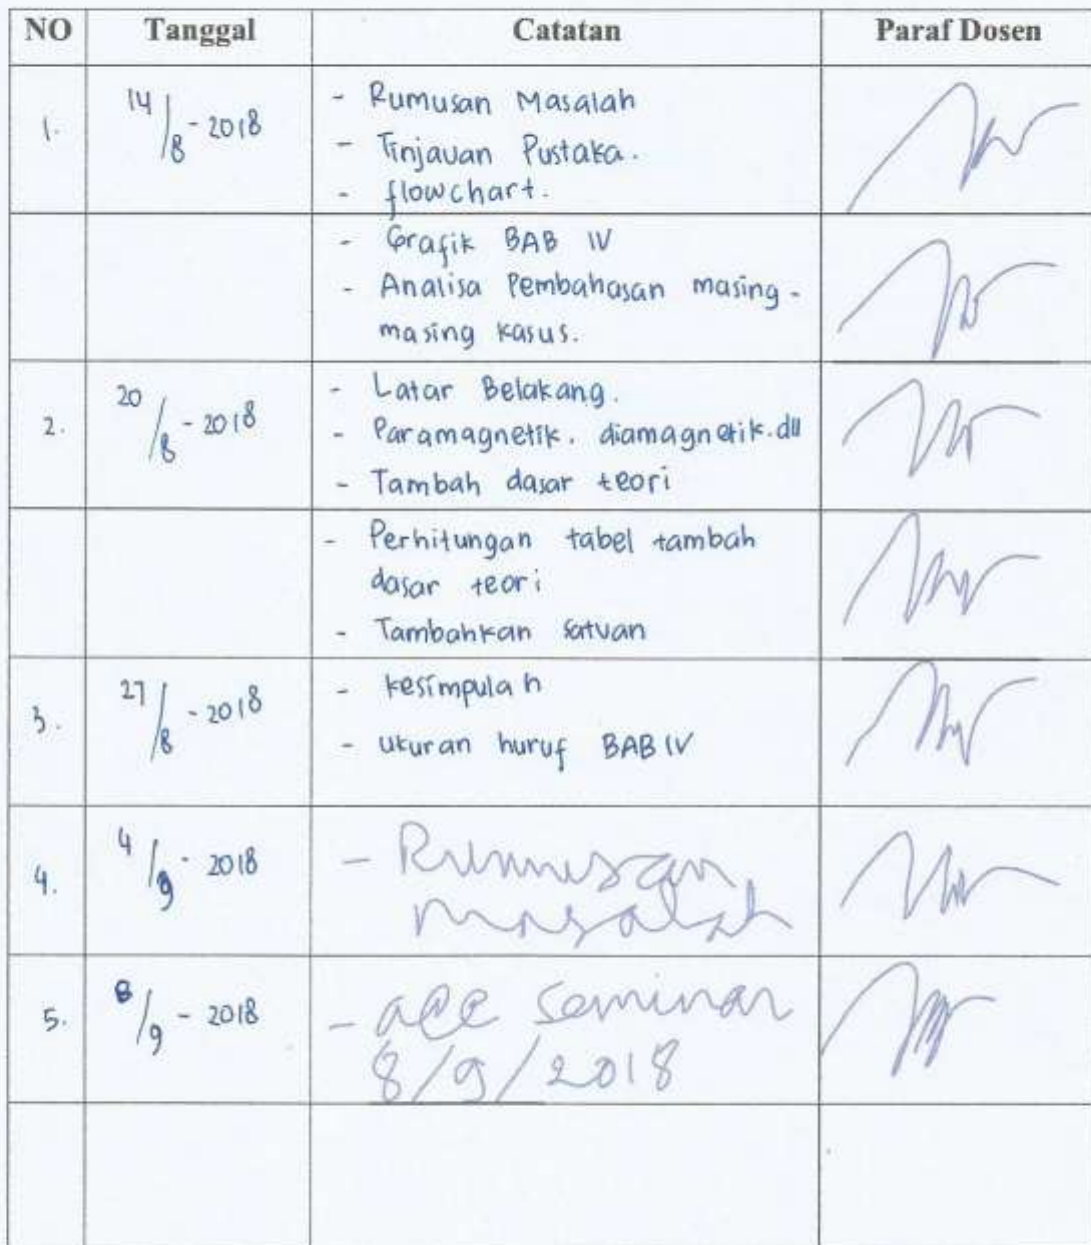 NO Tanggal Catatan Paraf Dosen
1. 14/8 - 2018 - Rumusan Masalah
- Tinjauan Pustaka.
- flowchart.
- Grafik BAB IV
- Analisa Pembahasan masing-
masing kasus.
2. 20/8 - 2018 - Latar Belakang.
- Paramagnetik. diamagnetik. dll
- Tambah dasar teori
- Perhitungan tabel tambah
dasar teori
- Tambahkan satuan
3. 27/8 - 2018 - kesimpulah
- ukuran huruf BAB IV
4. 4/9 - 2018 - Rumusan
masalah
5. 8/9 - 2018 - acc seminar
8/9/2018